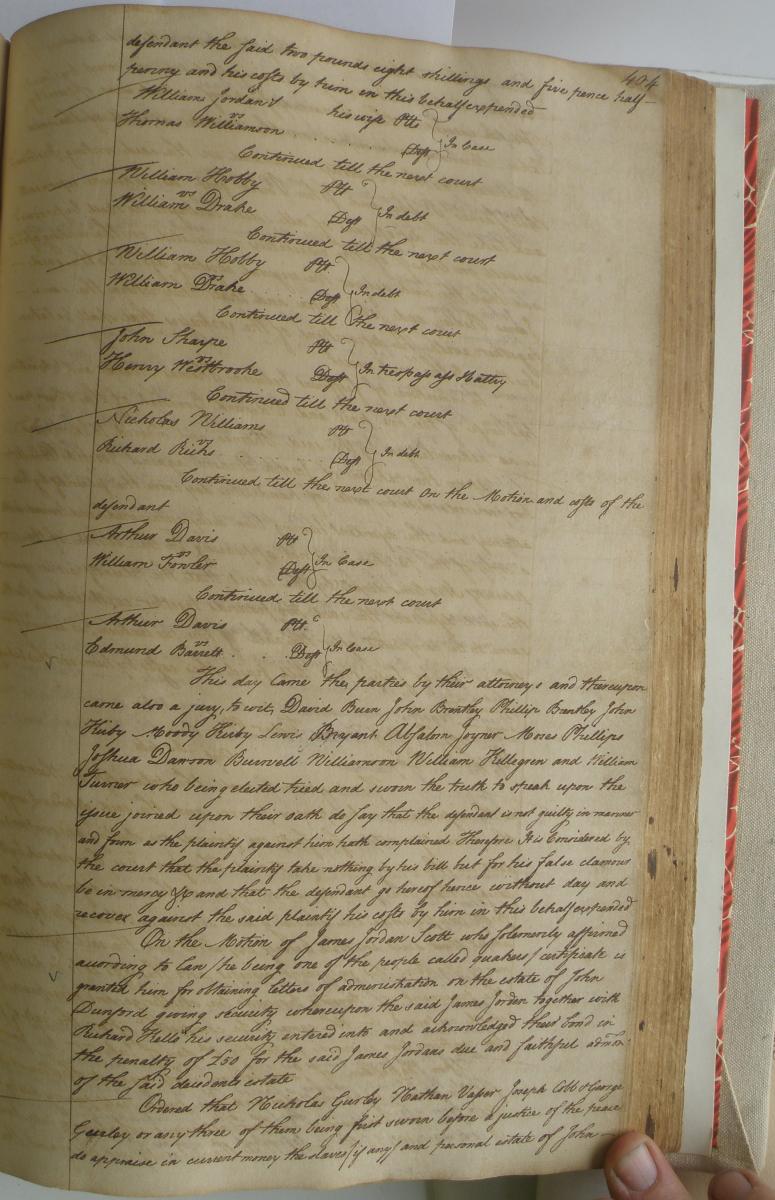 404
defendant the said two pounds eight shillings and five pence half-
penny and his costs by him in this behalf expended
William Jordan & his wife Plts
vs
Thomas Williamson Deft
In Case
Continued till the next court
William Hobby Plt
vs
William Drake Deft
In debt
Continued till the next court
William Hobby Plt
vs
William Drake Deft
In debt
Continued till the next court
John Sharpe Plt
vs
Henry Westbrooke Deft
In trespass ass Battry
Continued till the next court
Nicholas Williams Plt
vs
Richard Ricks Deft
In debt
Continued till the next court On the Motion and costs of the
defendant
Arthur Davis Plt
vs
William Fowler Deft
In Case
Continued till the next court
Arthur Davis Plt
vs
Edmund Barrett Deft
In Case
This day Came the parties by their attorneys and thereupon
came also a jury, to wit, David Buen John Brantley Phillip Brantley John
Kirby Moody Kirby Lewis Bryant Absalom Joyner Moses Phillips
Joshua Dawson Burwell Williamson William Killegrew and William
Turner who being elected tried and sworn the truth to speak upon the
issue joined upon their oath do say that the defendant is not guilty in manner
and form as the plaintif against him hath complained Therefore It is Considered by
the court that the plaintif take nothing by his bill but for his false clamour
be in mercy &c and that the defendant go hereof hence without day and
recover against the said plaintif his costs by him in this behalf expended
On the Motion of James Jordan Scott who solemnly affirmed
according to Law /he being one of the people called quakers/ certificate is
granted him for obtaining letters of administration on the estate of John
Dunford giving security whereupon the said James Jordan together with
Richard Kello his security entered into and acknowledged their bond in
the penalty of £50 for the said James Jordans due and faithful admon.
of the said decedents estate
Ordered that Nicholas Gurley Nathan Vasser Joseph Cobb & George
Gurley or any three of them being first sworn before a justice of the peace
do appraise in current money the slaves /if any/ and personal estate of John